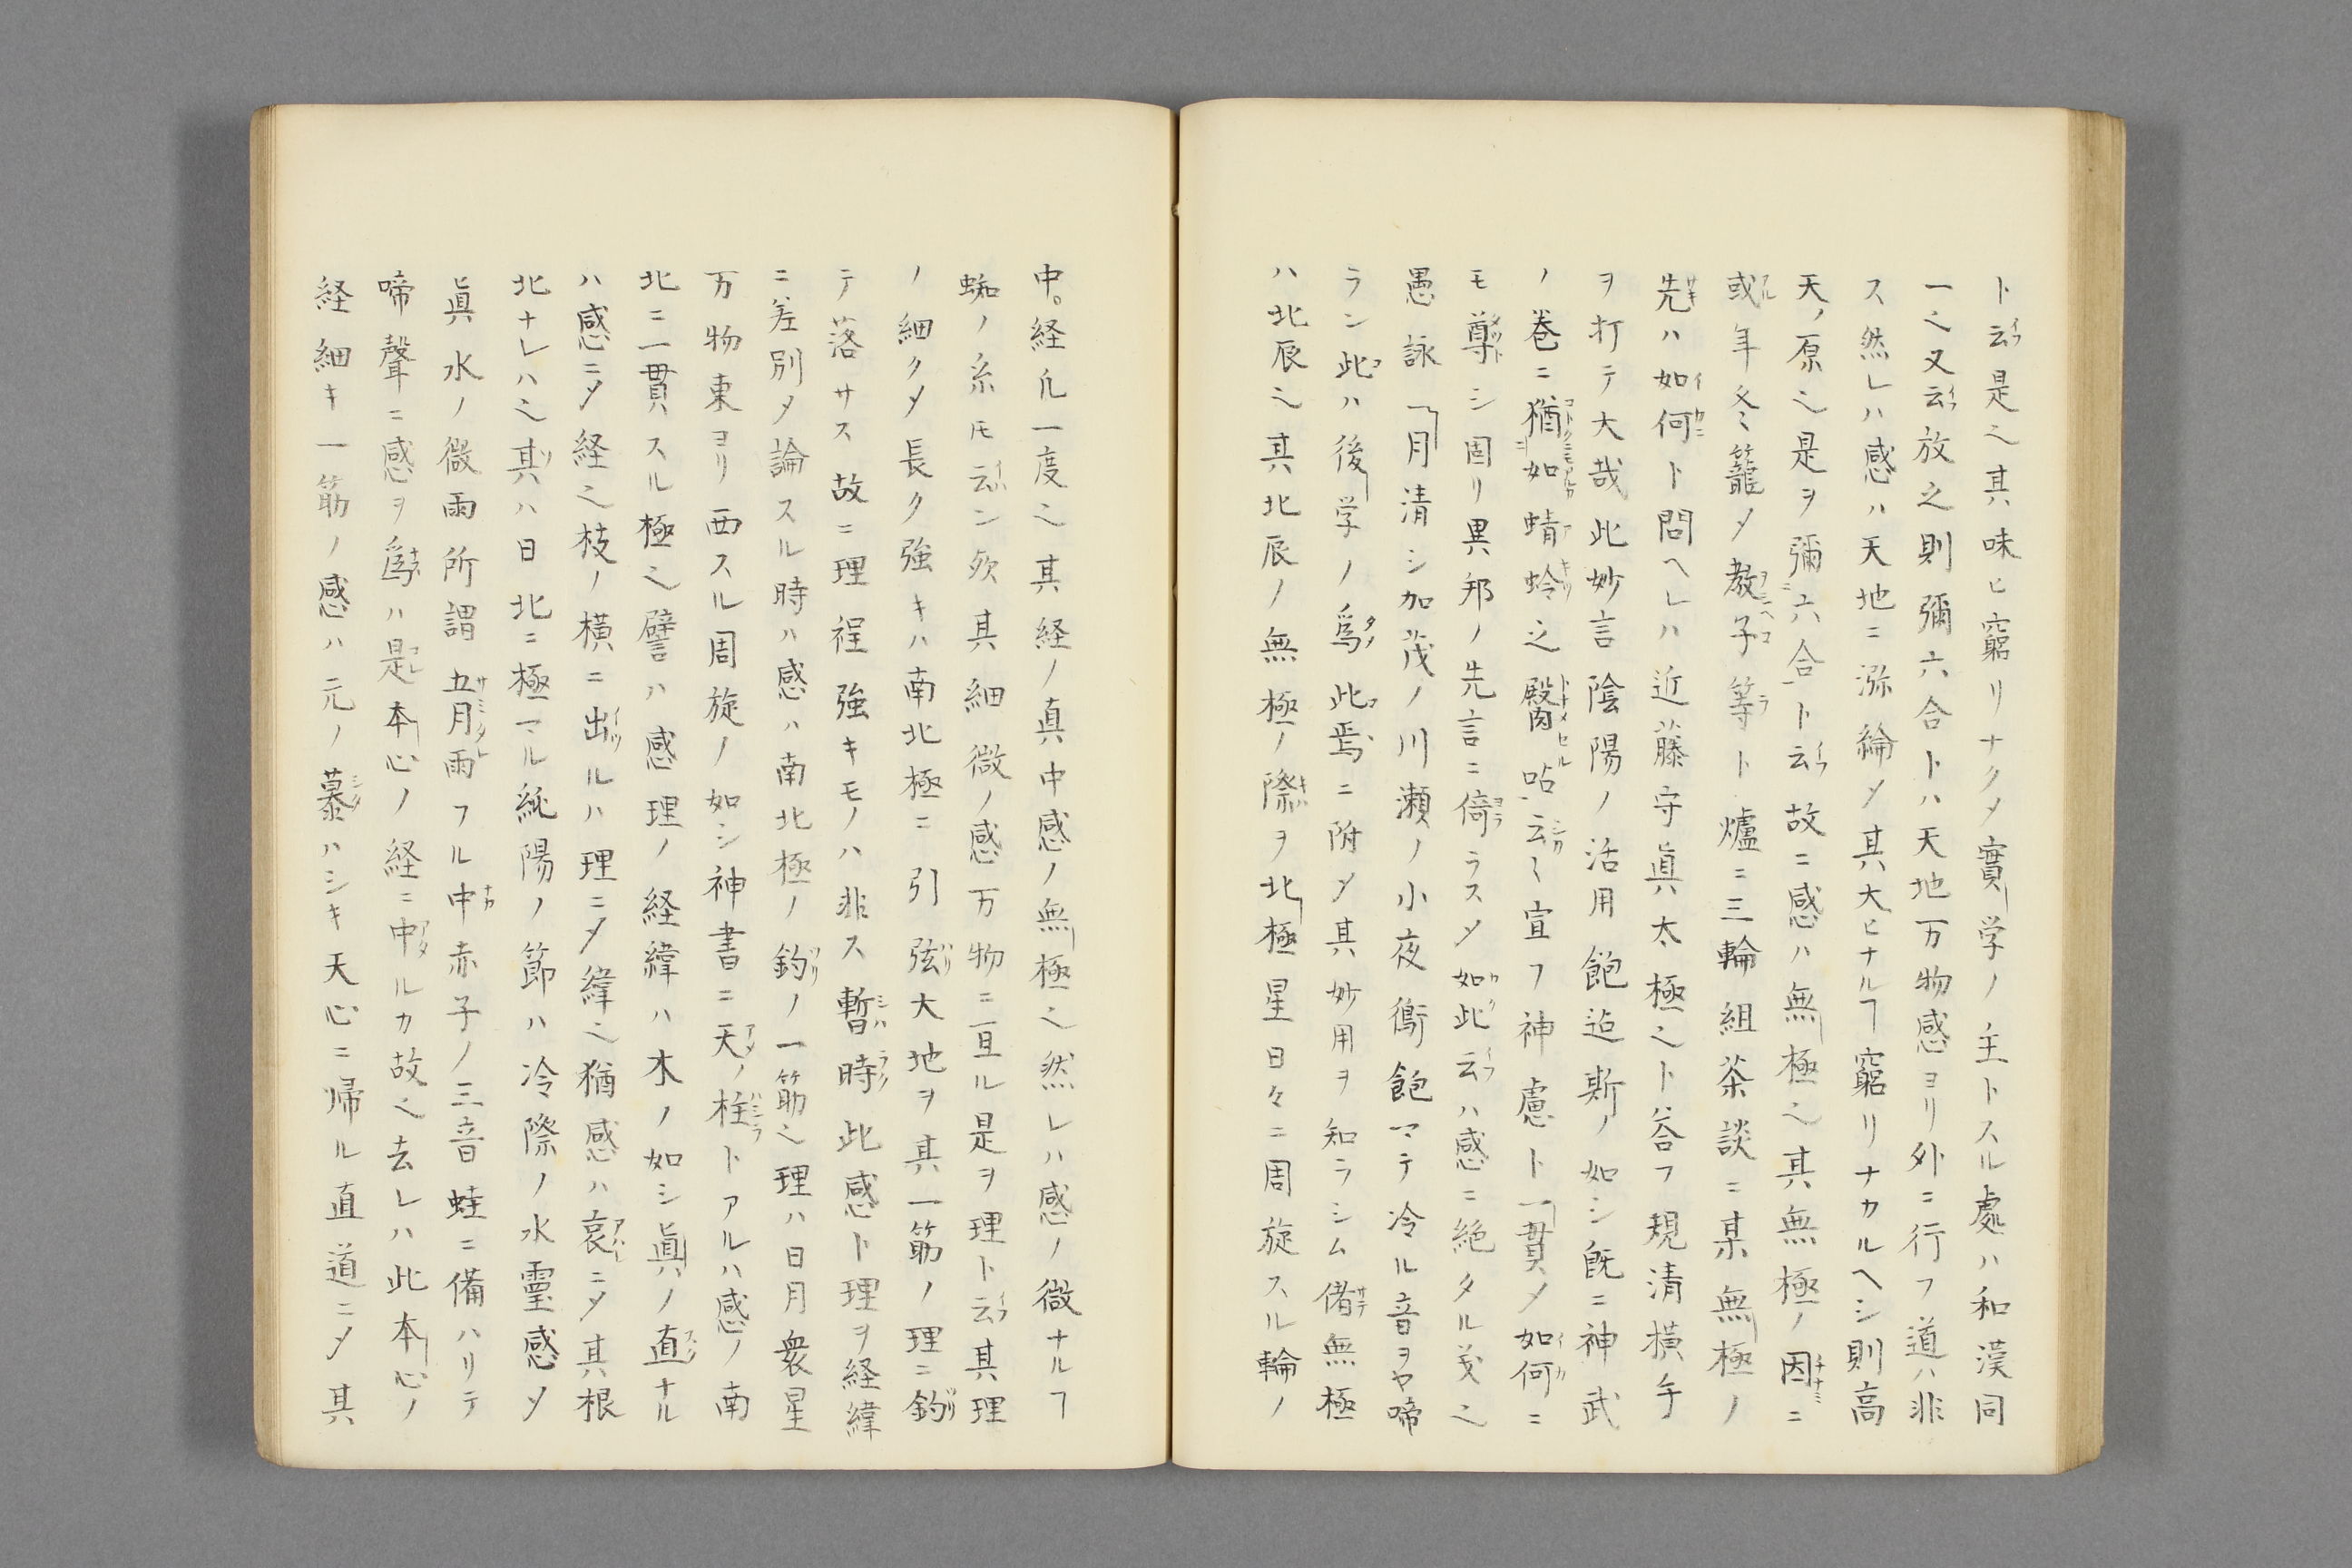 ト云是之其味ヒ窮リナクメ實学ノ主トスル處ハ和漢同
一之又云放之則彌六合トハ天地万物感ヨリ外ニ行フ道ハ非
ス然レハ感ハ天地ニ弥綸メ其大ヒナルヿ窮リナカルヘシ則高
天ノ原之是ヲ彌六合ト云故ニ感ハ無極之其無極ノ因ニ
或年冬籠メ教子等ト爐ニ三輪組茶談ニ某無極ノ
先ハ如何ト問ヘレハ近藤守眞太極之ト答フ規清横手
ヲ打テ大哉此妙言陰陽ノ活用飽迠斯ノ如シ既ニ神武
ノ巻ニ猶如蜻蛉之臀呫云〻宣フ神慮ト一貫メ如何ニ
モ尊シ固リ異邦ノ先言ニ倚ラスメ如此云ハ感ニ絶タル義之
愚詠「月清シ加茂ノ川瀬ノ小夜衞飽マテ冷ル音ヲヤ啼
ラン此ハ後学ノ爲此焉ニ附メ其妙用ヲ知ラシム偖無極
ハ北辰之其北辰ノ無極ノ際ヲ北極星日々ニ周旋スル輪ノ
中。経凢一度之其経ノ真中感ノ無極之然レハ感ノ微ナルヿ
蜘ノ糸モ云ン欤其細微ノ感万物ニ亘ル是ヲ理ト云其理
ノ細クメ長ク強キハ南北極ニ引弦大地ヲ其一筋ノ理ニ釣
テ落サス故ニ理程強キモノハ非ス暫時此感ト理ヲ経緯
ニ差別メ論スル時ハ感ハ南北極ノ釣ノ一筋之理ハ日月衆星
万物東ヨリ西スル周旋ノ如シ神書ニ天ノ柱トアルハ感ノ南
北ニ一貫スル極之譬ハ感理ノ経緯ハ木ノ如シ眞ノ直ナル
ハ感ニメ経之枝ノ横ニ出ルハ理ニメ緯之猶感ハ哀ニメ其根
北ナレハ之其ハ日北ニ極マル純陽ノ節ハ冷際ノ水靈感メ
眞水ノ微雨所謂五月雨フル中赤子ノ三音蛙ニ備ハリテ
啼聲ニ感ヲ爲ハ是本心ノ経ニ中ルカ故之去レハ此本心ノ
経細キ一筋ノ感ハ元ノ慕ハシキ天心ニ帰ル直道ニメ其